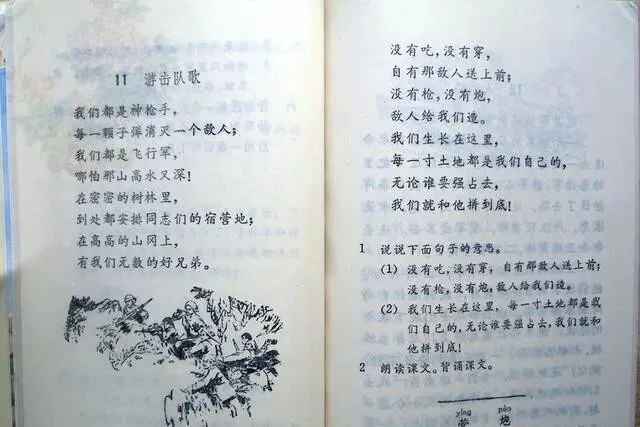 11 游击队歌
我们都是神枪手，
每一颗子弹消灭一个敌人；
我们都是飞行军，
哪怕那山高水又深！
在密密的树林里，
到处都安排同志们的宿营地；
在高高的山冈上，
有我们无数的好兄弟。
没有吃，没有穿，
自有那敌人送上前；
没有枪，没有炮，
敌人给我们造。
我们生长在这里，
每一寸土地都是我们自己的，
无论谁要强占去，
我们就和他拼到底！
1 说说下面句子的意思。
(1) 没有吃，没有穿，自有那敌人送上前；
没有枪，没有炮，敌人给我们造。
(2) 我们生长在这里，每一寸土地都是我
们自己的，无论谁要强占去，我们就和
他拼到底！
2 朗读课文。背诵课文。
yíng pào
营 炮